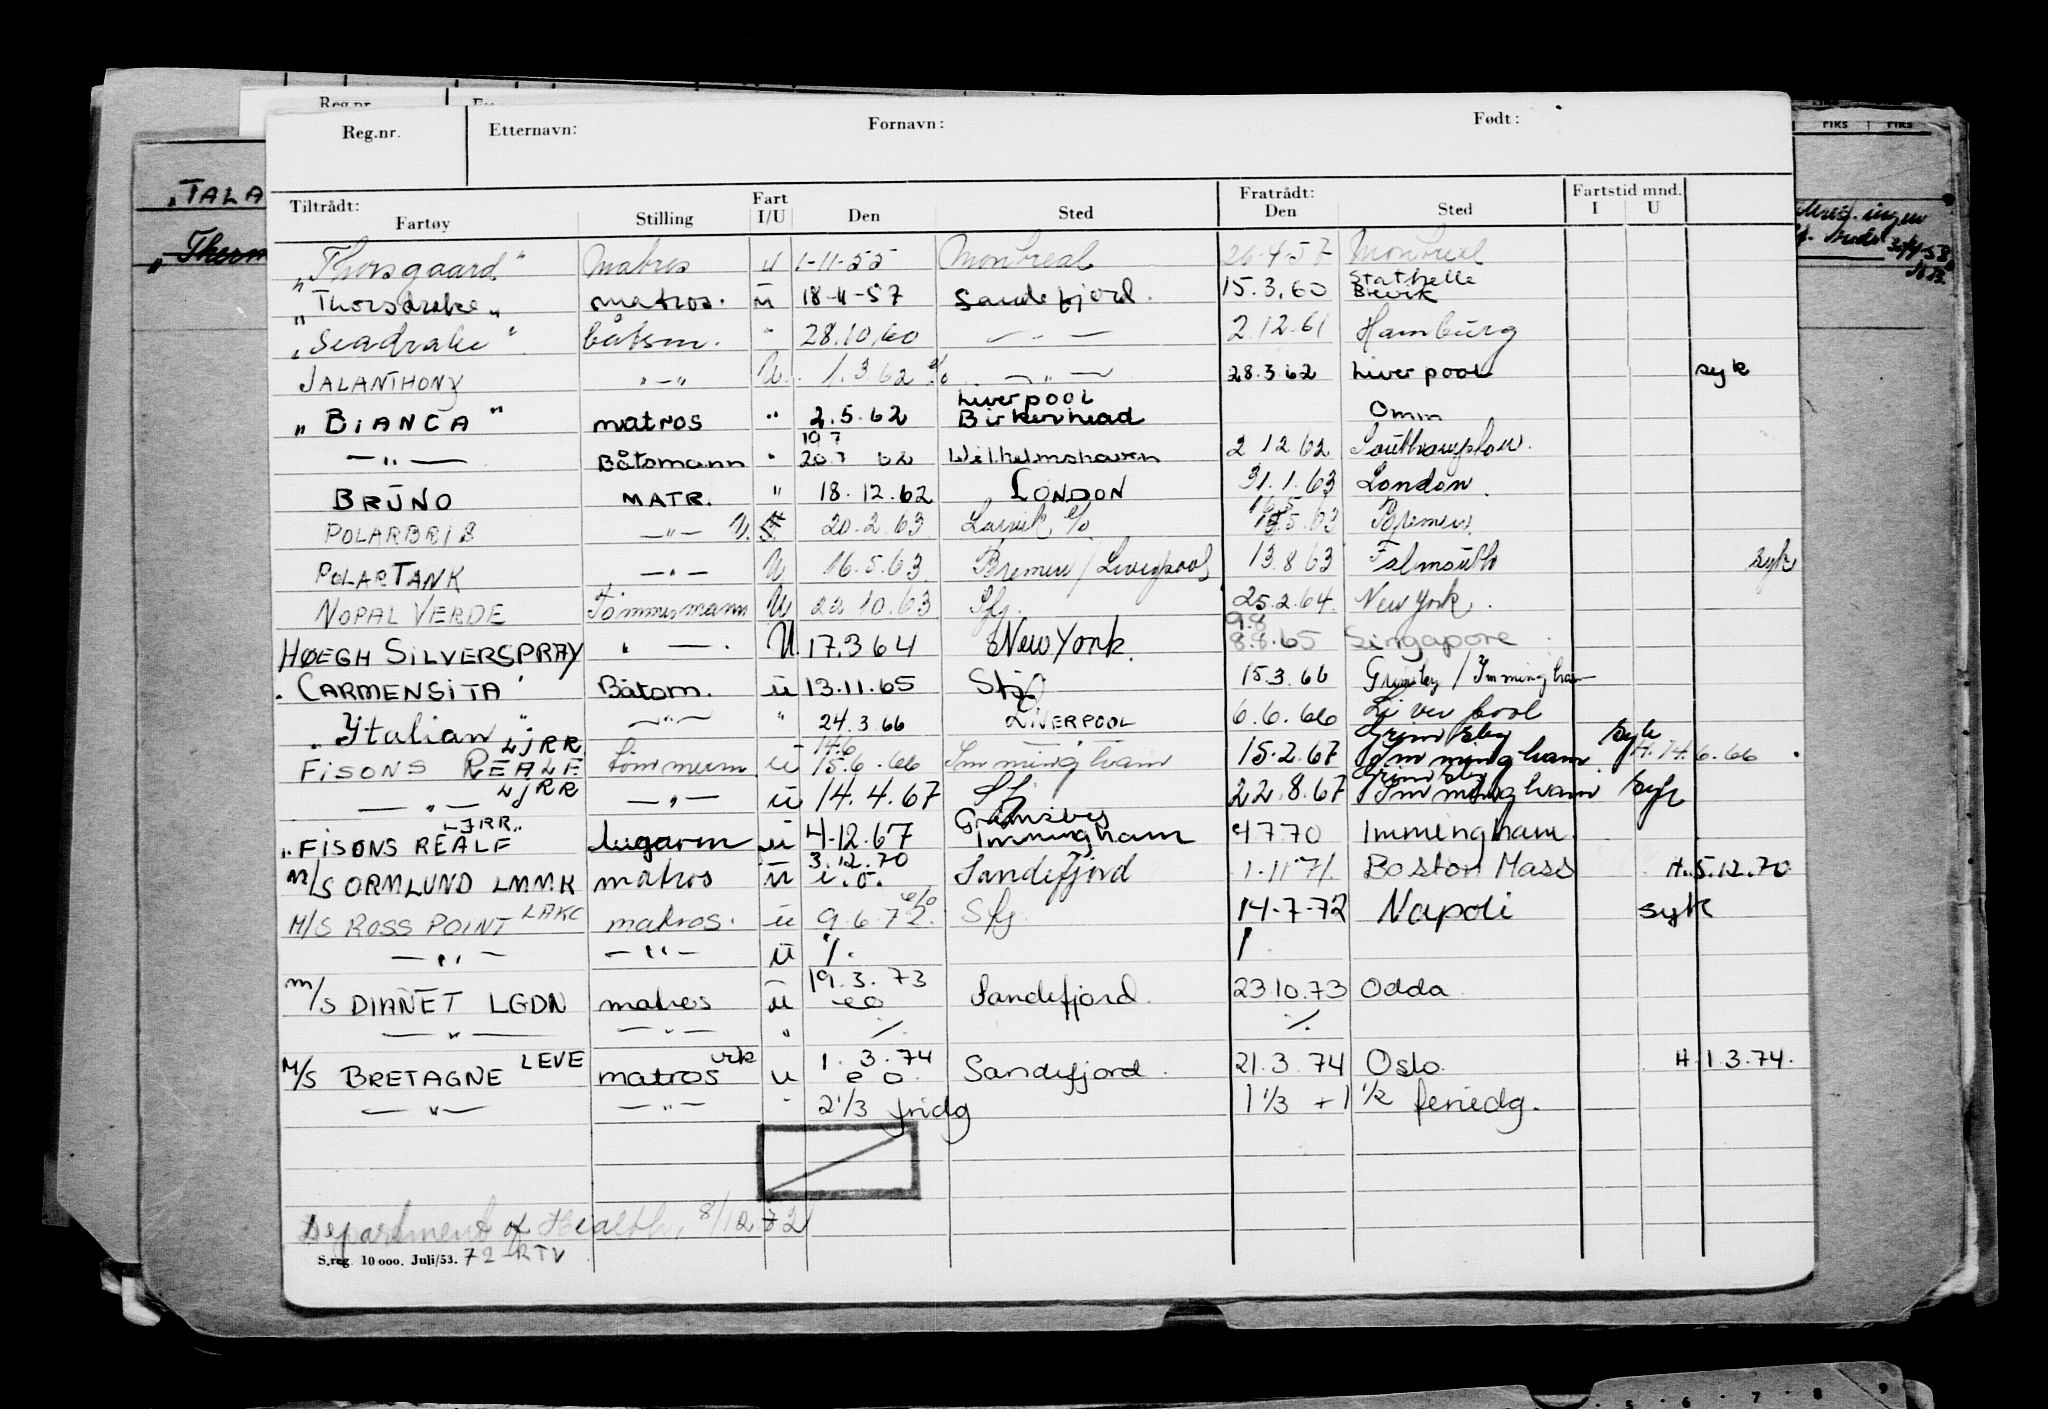 Reg.nr.
Reg.nr. Etternavn: Fornavn: Født:
riks riks
Tiltrådt: Fart Fratrådt: Fartstid mnd.
Fartøy Stilling I/U Den Sted Den Sted I U
„TALA
„Therm
„Thorsgaard" matros u 1-11-55 Montreal 26.4.57 Montreal
„Thorsdrake„ matros. u 18-11-57 Sandefjord. 15.3.60 Stathelle Brevik
„Seadrake" båtsm. " 28.10.60 — 〃 — 2.12.61 Hamburg
JALANTHONY " — " U. 1.3.62 e/o — " — 28.3.62 Liverpool syk
„BIANCA" matros " 2.5.62 Liverpool Birkenhead Omm
— " — Båtsmann " 19.7 20.7 62 Wilhelmshaven 2 12 62 Southampton.
BRUNO MATR. " 18.12.62 LONDON 31.1.63 London.
POLARBRIS — " — U. 20.2.63 Larvik e/o 16.5 15.5.63 Bremen
POLARTANK — " — U 16.5.63 Bremen/Liverpool 13.8.63 Falmouth syk
NOPAL VERDE Tømmermann U 22 10.63 Sfj. 25.2.64. New York.
HØEGH SILVERSPRAY " — . U 17.3 64 New York. 9.8 8.8.65 Singapore
"CARMENSITA" Båtsm. u 13.11.65 Sfj 15.3.66 Grimsby / Immingham
„Italian" — " — " 24.3.66 LIVERPOOL 6.6.66 Liverpool
FISONS REALF LJRR tømmerm u 14.6 15.6.66 Immingham 15.2.67 Grimsby Immingham syk H.14.6.66
— " — LJRR — " — u 14.4.67 Sfj 22.8.67 Grimsby Immingham syk
„FISONS REALF LJRR„ lugarm u 4-12.67 Grimsby Immingham 4770 Immingham
M/S ORMLUND LMMK matros u 3.12.70 e.o. Sandefjord 1.11.71. Boston Mass H.5.12.70
M/S ROSS POINT LAKC matros. u 9.6.72. e/o Sfj. 14-7-72 Napoli syk
— " — — " — u %. 1.
M/S DIANET LGDN matros u 19.3.73 eo Sandefjord. 23.10.73 Odda
— " — — " — " %. %.
M/S BRETAGNE LEVE matros vik u 1.3.74 e o. Sandefjord. 21.3.74 Oslo. H 1.3.74.
— " — — " — " 2 1/3 fridg 1 1/3 + 1 1/2 feriedg.
Department of Health, 8/12 72
S.reg. 10 000. Juli/53. 72-RTV
5 6 7 8 9